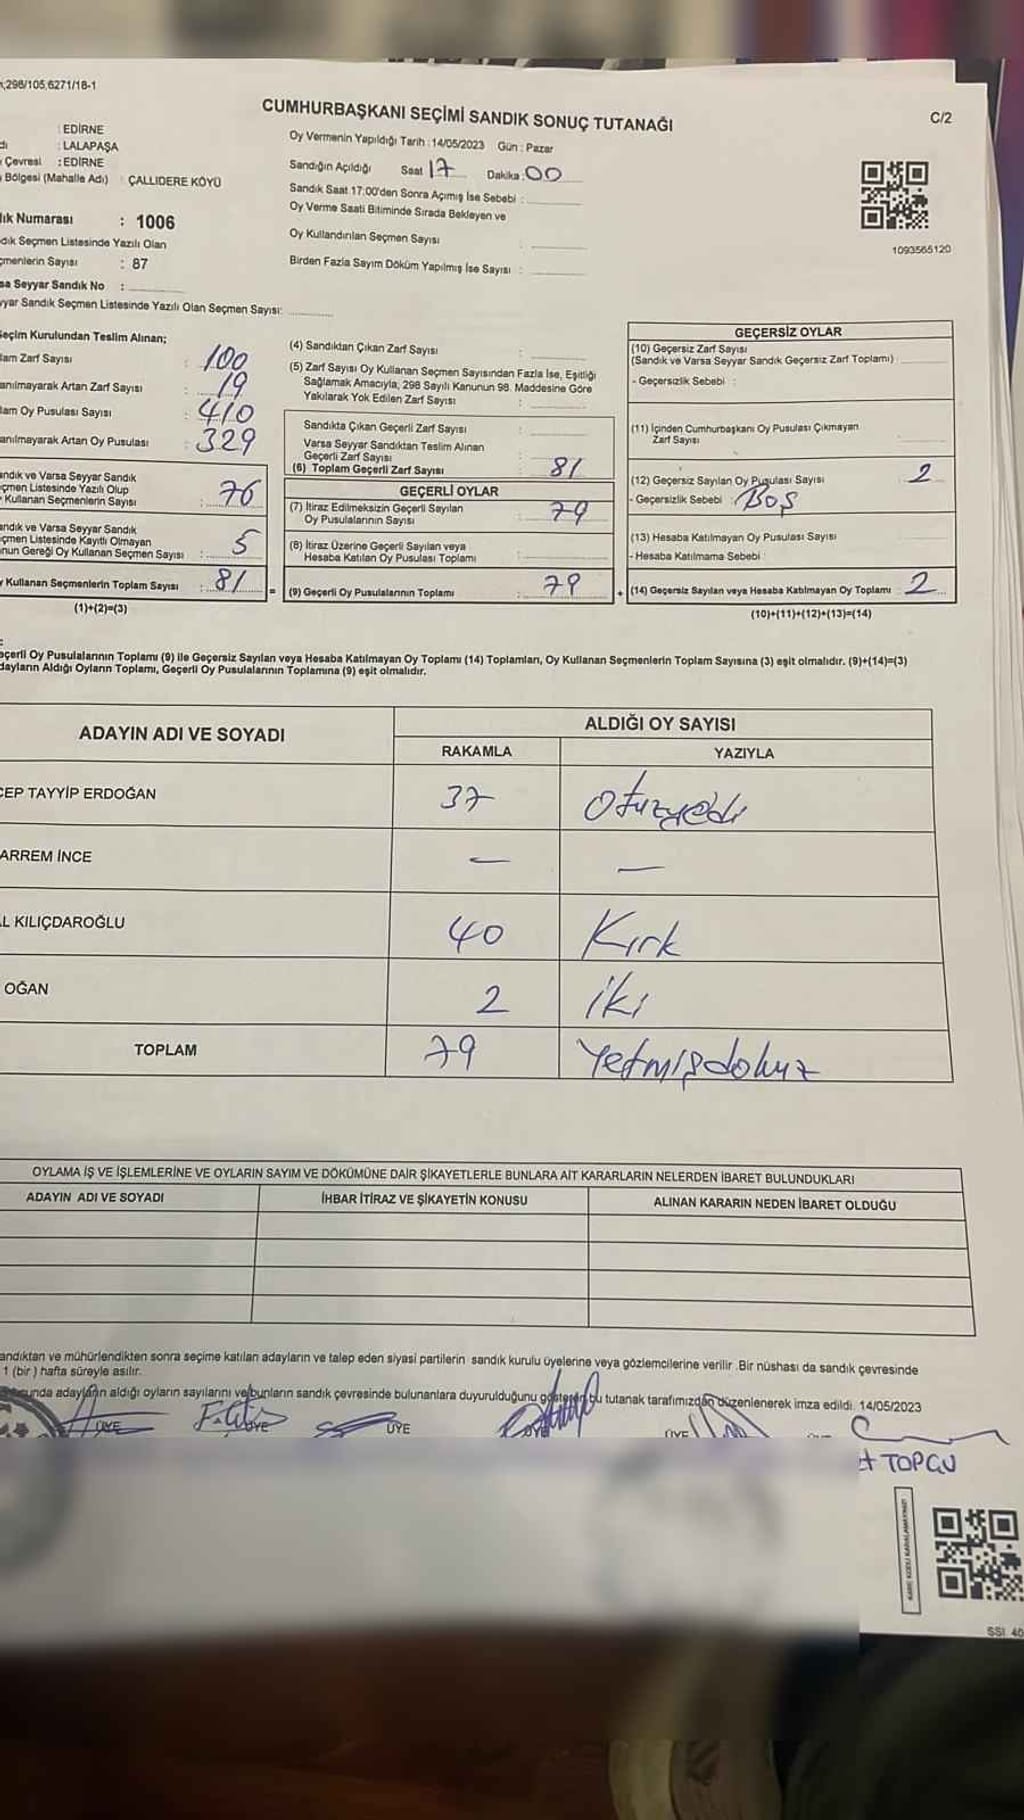 298/105,6271/18-1
CUMHURBAŞKANI SEÇİMİ SANDIK SONUÇ TUTANAĞI
C/2
: EDİRNE
: LALAPAŞA
Çevresi : EDİRNE
Bölgesi (Mahalle Adı) : ÇALLIDERE KÖYÜ
Oy Vermenin Yapıldığı Tarih : 14/05/2023 Gün : Pazar
Sandığın Açıldığı Saat 17 Dakika : 00
Sandık Saat 17:00'den Sonra Açımış İse Sebebi :
Oy Verme Saati Bitiminde Sırada Bekleyen ve
Oy Kullandırılan Seçmen Sayısı :
Birden Fazla Sayım Döküm Yapılmış İse Sayısı :
1093565120
ık Numarası : 1006
dık Seçmen Listesinde Yazılı Olan
çmenlerin Sayısı : 87
sa Seyyar Sandık No :
yyar Sandık Seçmen Listesinde Yazılı Olan Seçmen Sayısı:
eçim Kurulundan Teslim Alınan;
lam Zarf Sayısı : 100
anılmayarak Artan Zarf Sayısı : 19
lam Oy Pusulası Sayısı : 410
anılmayarak Artan Oy Pusulası : 329
ndık ve Varsa Seyyar Sandık
çmen Listesinde Yazılı Olup
Kullanan Seçmenlerin Sayısı : 76
ndık ve Varsa Seyyar Sandık
çmen Listesinde Kayıtlı Olmayan
nun Gereği Oy Kullanan Seçmen Sayısı : 5
Kullanan Seçmenlerin Toplam Sayısı : 81 =
(1)+(2)=(3)
(4) Sandıktan Çıkan Zarf Sayısı :
(5) Zarf Sayısı Oy Kullanan Seçmen Sayısından Fazla İse, Eşitliği
Sağlamak Amacıyla, 298 Sayılı Kanunun 98. Maddesine Göre
Yakılarak Yok Edilen Zarf Sayısı :
Sandıkta Çıkan Geçerli Zarf Sayısı :
Varsa Seyyar Sandıktan Teslim Alınan
Geçerli Zarf Sayısı :
(6) Toplam Geçerli Zarf Sayısı : 81
GEÇERLİ OYLAR
(7) İtiraz Edilmeksizin Geçerli Sayılan
Oy Pusulalarının Sayısı : 79
(8) İtiraz Üzerine Geçerli Sayılan veya
Hesaba Katılan Oy Pusulası Toplamı :
(9) Geçerli Oy Pusulalarının Toplamı : 79 +
GEÇERSİZ OYLAR
(10) Geçersiz Zarf Sayısı
(Sandık ve Varsa Seyyar Sandık Geçersiz Zarf Toplamı) :
- Geçersizlik Sebebi :
(11) İçinden Cumhurbaşkanı Oy Pusulası Çıkmayan
Zarf Sayısı
(12) Geçersiz Sayılan Oy Pusulası Sayısı : 2
- Geçersizlik Sebebi : Boş
(13) Hesaba Katılmayan Oy Pusulası Sayısı
- Hesaba Katılmama Sebebi :
(14) Geçersiz Sayılan veya Hesaba Katılmayan Oy Toplamı : 2
(10)+(11)+(12)+(13)=(14)
eçerli Oy Pusulalarının Toplamı (9) ile Geçersiz Sayılan veya Hesaba Katılmayan Oy Toplamı (14) Toplamları, Oy Kullanan Seçmenlerin Toplam Sayısına (3) eşit olmalıdır. (9)+(14)=(3)
dayların Aldığı Oyların Toplamı, Geçerli Oy Pusulalarının Toplamına (9) eşit olmalıdır.
ADAYIN ADI VE SOYADI
ALDIĞI OY SAYISI
RAKAMLA YAZIYLA
CEP TAYYİP ERDOĞAN 37 Otuzyedi
ARREM İNCE — —
L KILIÇDAROĞLU 40 Kırk
OĞAN 2 iki
TOPLAM 79 Yetmişdokuz
OYLAMA İŞ VE İŞLEMLERİNE VE OYLARIN SAYIM VE DÖKÜMÜNE DAİR ŞİKAYETLERLE BUNLARA AİT KARARLARIN NELERDEN İBARET BULUNDUKLARI
ADAYIN ADI VE SOYADI İHBAR İTİRAZ VE ŞİKAYETİN KONUSU ALINAN KARARIN NEDEN İBARET OLDUĞU
andıktan ve mühürlendikten sonra seçime katılan adayların ve talep eden siyasi partilerin sandık kurulu üyelerine veya gözlemcilerine verilir .Bir nüshası da sandık çevresinde
1 (bir ) hafta süreyle asılır.
unda adayların aldığı oyların sayılarını ve bunların sandık çevresinde bulunanlara duyurulduğunu gösteren bu tutanak tarafımızdan düzenlenerek imza edildi. 14/05/2023
ÜYE ÜYE ÜYE ÜYE
TOPÇU
SSI 40